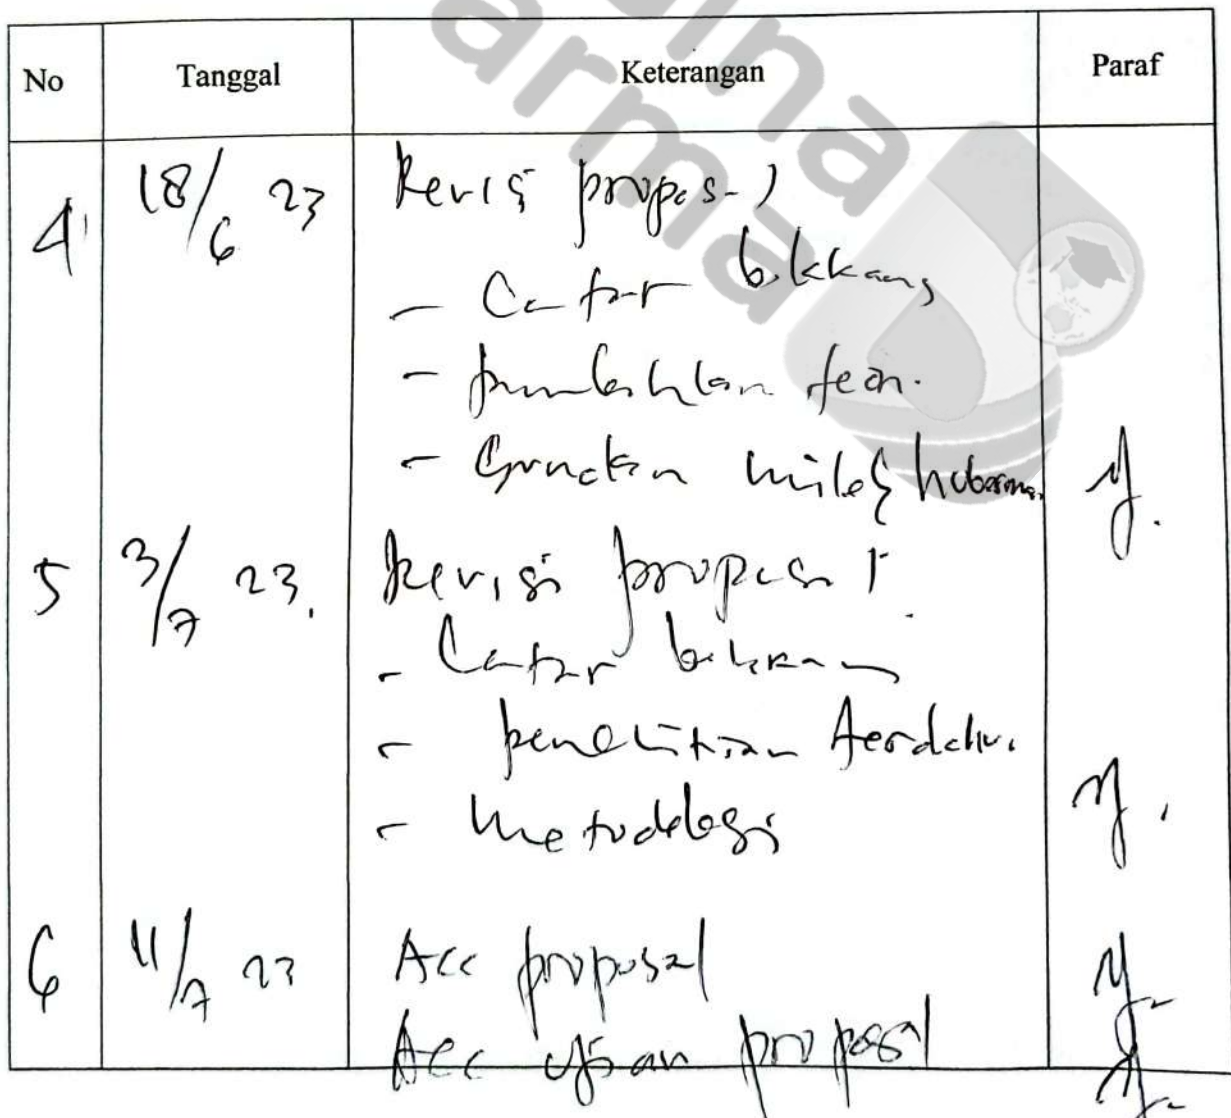 No Tanggal Keterangan Paraf
4 18/6 23 Revisi proposal
- Latar belakang
- tambahkan teori.
- Gunakan miles huberman
5 3/7 23. Revisi proposal
- Latar belakang
- penelitian terdahulu.
- Metodologi
6 11/7 23 Acc proposal
Acc ujian proposal